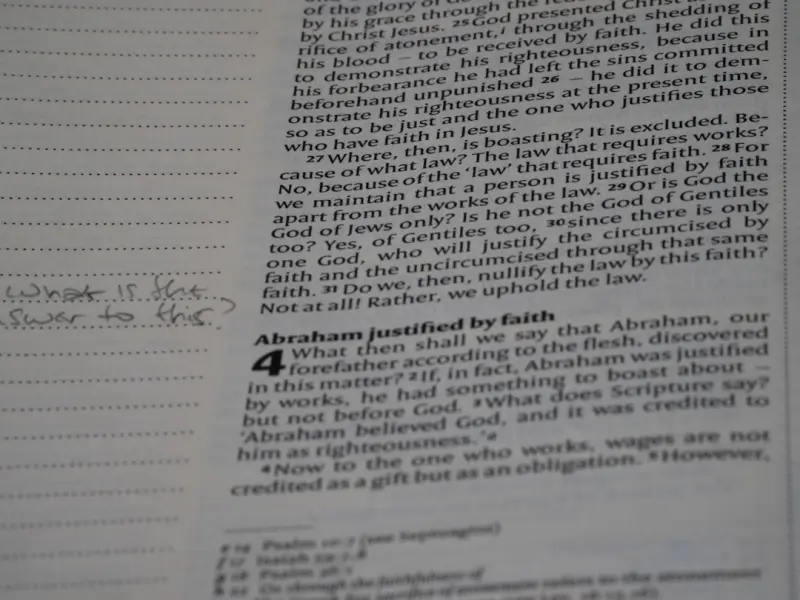 of the glory of
by his grace through the
by Christ Jesus. 25 God presented Christ
rifice of atonement,i through the shedding of
his blood – to be received by faith. He did this
to demonstrate his righteousness, because in
his forbearance he had left the sins committed
beforehand unpunished 26 – he did it to dem-
onstrate his righteousness at the present time,
so as to be just and the one who justifies those
who have faith in Jesus.
27 Where, then, is boasting? It is excluded. Be-
cause of what law? The law that requires works?
No, because of the ‘law’ that requires faith. 28 For
we maintain that a person is justified by faith
apart from the works of the law. 29 Or is God the
God of Jews only? Is he not the God of Gentiles
too? Yes, of Gentiles too, 30 since there is only
one God, who will justify the circumcised by
faith and the uncircumcised through that same
faith. 31 Do we, then, nullify the law by this faith?
Not at all! Rather, we uphold the law.
what is the
swer to this?
Abraham justified by faith
4 What then shall we say that Abraham, our
forefather according to the flesh, discovered
in this matter? 2 If, in fact, Abraham was justified
by works, he had something to boast about –
but not before God. 3 What does Scripture say?
‘Abraham believed God, and it was credited to
him as righteousness.’a
4 Now to the one who works, wages are not
credited as a gift but as an obligation. 5 However,
Psalm (see Septuagint)
Isaiah
Psalm
Or through the faithfulness of